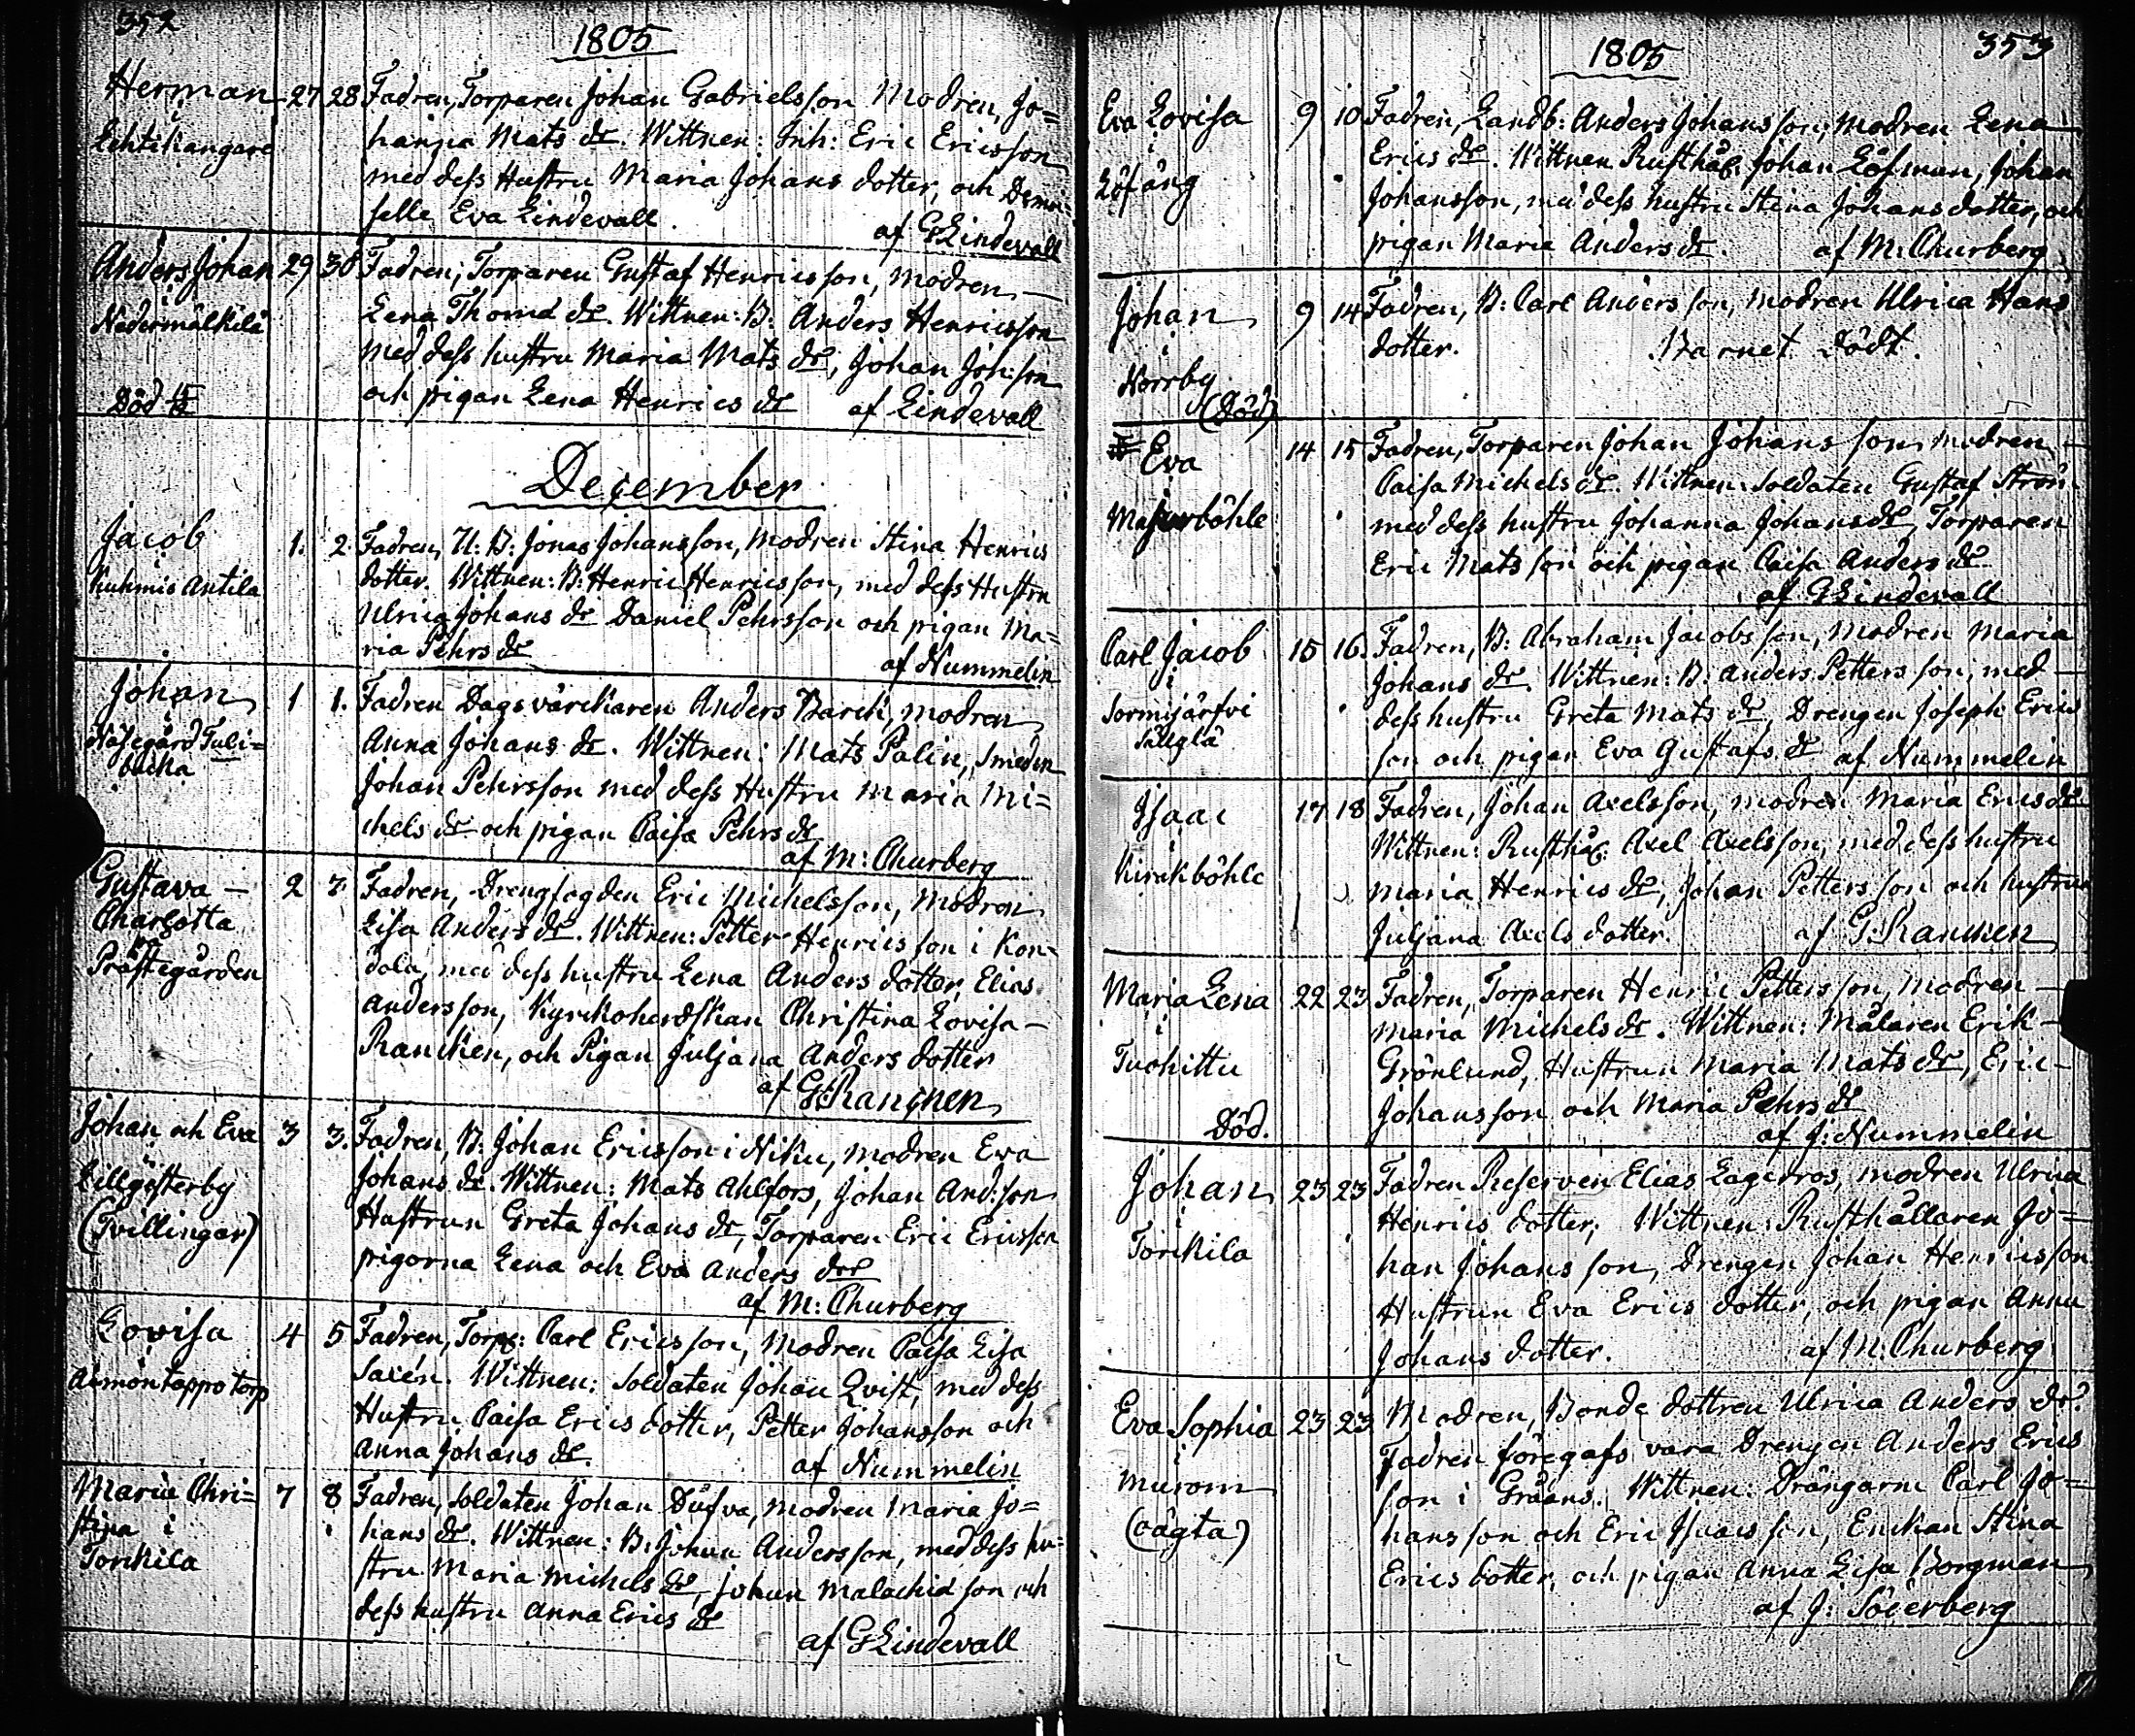 352
1805
Herman 27 28 Fadren, Torparen Johan Gabrielsson Modren, Jo=
i
Lehtikangare
hanna Mats dr. Wittnen: Inh: Eric Ericsson
med dess Hustru Maria Johans dotter, och Demoi
selle Eva Lindevall.
af G Lindevall
Anders Johan 29 30 Fadren; Torparen Gustaf Henricsson, modren
i
Nedermälkilä
Lena Thomæ dr. Wittnen: B: Anders Henricsson
med dess hustru Maria Mats dr, Johan Joh:son
Död
och pigan Lena Henrics dr af Lindevall
December
Jacob 1. 2 Fadren, U: B: Jonas Johansson, Modren Stina Henrics
i
Kuhmis Antila
dotter. Wittnen: B: Henric Henricsson, med dess Hustru
Ulrica Johans dr Daniel Pehrsson och pigan Ma=
ria Pehrs dr
af Nummelin
Johan 1 1. Fadren Dagsvärckaren Anders Barck, modren
i
Näsegård Tuli=
backa
Anna Johans dr. Wittnen: Mats Palin, Smeden
Johan Pehrsson med dess Hustru Maria Mi=
chels dr och pigan Caisa Pehrs dr
af M: Churberg
Gustava - 2 7 Fadren, Drengfogden Eric Michelsson, Modren
Charlotta
i
Prästegården
Lisa Anders dr. Wittnen: Petter Henricsson i Kon=
dola, med dess hustru Lena Anders dotter, Elias
Andersson, Kyrckoherdskan Christina Lovisa -
Rancken, och Pigan Juljana Anders dotter
af G: Rancken
Johan och Eva 3 3. Fadren, B: Johan Ericsson i Niku, modren Eva
i
Lillgesterby
(Tvillingar)
Johans dr. Wittnen: Mats Ahlfors, Johan And:son
Hustrun Greta Johans dr, Torparen Eric Ericsson
pigorna Lena och Eva Anders drr
af M: Churberg
Lovisa 4 5 Fadren, Torp: Carl Ericsson, Modren Caisa Lisa
i
torp
Salén. Wittnen: Soldaten Johan Qvist, med dess
Hustru Caisa Erics dotter, Petter Johansson och
Anna Johans dr.
af Nummelin
Maria Chri= 7 8 Fadren, Soldaten Johan Dufva, modren Maria Jo=
stina i
Torckila
hans dr. Wittnen: B: Johan Andersson, med dess hu=
stru Maria Michels dr, Johan Malachiæ son och
dess hustru Anna Erics dr
af G Lindevall
353
1805
Eva Lovisa 9 10 Fadren, Landb: Anders Johansson; Modren Lena
i
Löfäng
Erics dr. Wittnen Rusthåll: Johan Löfman, Johan
Johansson, med dess hustru Stina Johans dotter, och
pigan Maria Anders dr.
af M: Churberg
Johan 9 14 Fadren, B: Carl Andersson, modren Ulrica Hans
i
Norrby
(Död)
dotter.
Barnet Dödt.
Eva 14 15 Fadren, Torparen Johan Johansson, modren
i
Masurböhle
Caisa Michels dr. Wittnen: Soldaten Gustaf Ström
med dess hustru Johanna Johans dr, Torparen
Eric Matsson och pigan Caisa Anders dr
af G Lindevall
Carl Jacob 15 16. Fadren, B: Abraham Jacobsson, Modren Maria
i
Sormijärfvi
Johans dr. Wittnen: B: Anders Pettersson, med
dess hustru Greta Mats dr, Drengen Joseph Erics
son och pigan Eva Gustafs dr af Nummelin
Isaac 17 18 Fadren, Johan Axelsson, modren Maria Erics dr
i
Kirakböhle
Wittnen: Rusthåll: Axel Axelsson, med dess hustru
Maria Henrics dr, Johan Pettersson och hustrun
Juljana Axels dotter.
af G: Rancken
Maria Lena 22 23 Fadren, Torparen Henric Pettersson, modren
i
Tuohittu
Död.
Maria Michels dr. Wittnen: Målaren Erik
Grönlund, Hustrun Maria Mats dr, Eric
Johansson och Maria Pehrs dr
af J: Nummelin
Johan 23 23 Fadren Reserven Elias Lagerros, modren Ulrica
i
Torckila
Henrics dotter; Wittnen: Rusthållaren Jo=
han Johansson, Drengen Johan Henricsson
Hustrun Eva Erics dotter, och pigan Anna
Johans dotter.
af M: Churberg
Eva Sophia 23 23 Modren, Bonde dottren Ulrica Anders dr:
i
Murom
(oägta)
Fadren föregafs vara Drengen Anders Erics
son i Gråans. Wittnen: Drängarne Carl Jo=
hansson och Eric Isacsson, Enckan Stina
Erics dotter, och pigan Anna Lisa Borgman
af J: Söderberg